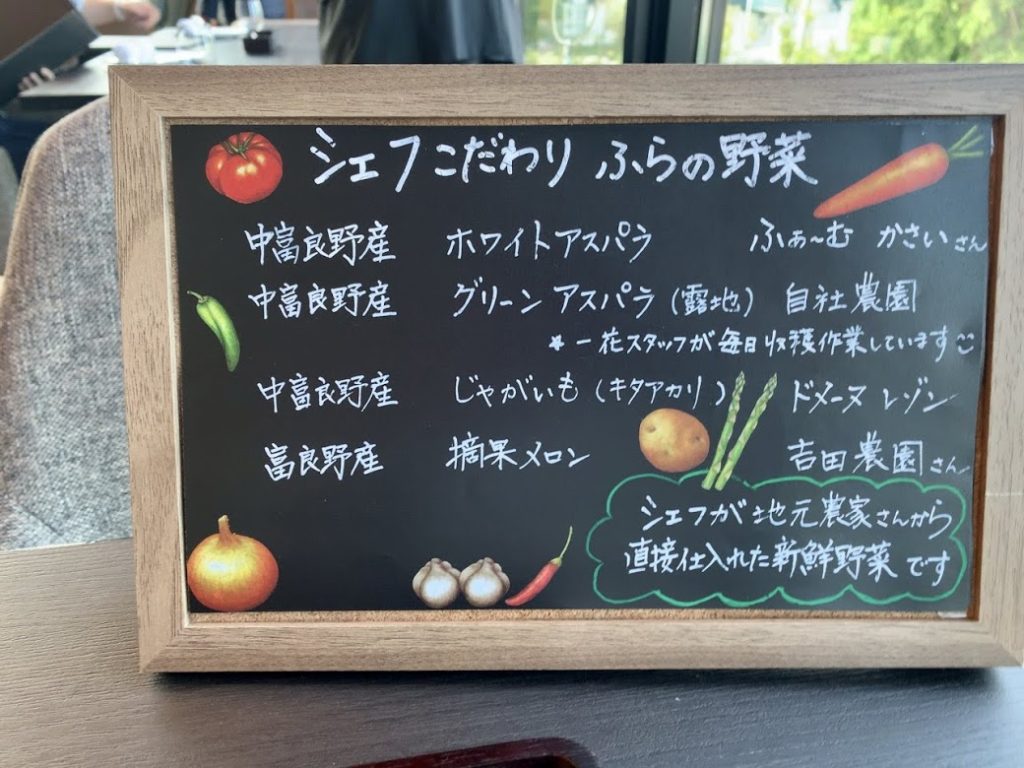 シェフこだわり ふらの野菜
中富良野産 ホワイトアスパラ ふぁ〜む かさいさん
中富良野産 グリーンアスパラ(露地) 自社農園
* 一花スタッフが毎日収穫作業しています☺
中富良野産 じゃがいも(キタアカリ) ドメーヌ レゾン
富良野産 摘果メロン 吉田農園さん
シェフが地元農家さんから
直接仕入れた新鮮野菜です